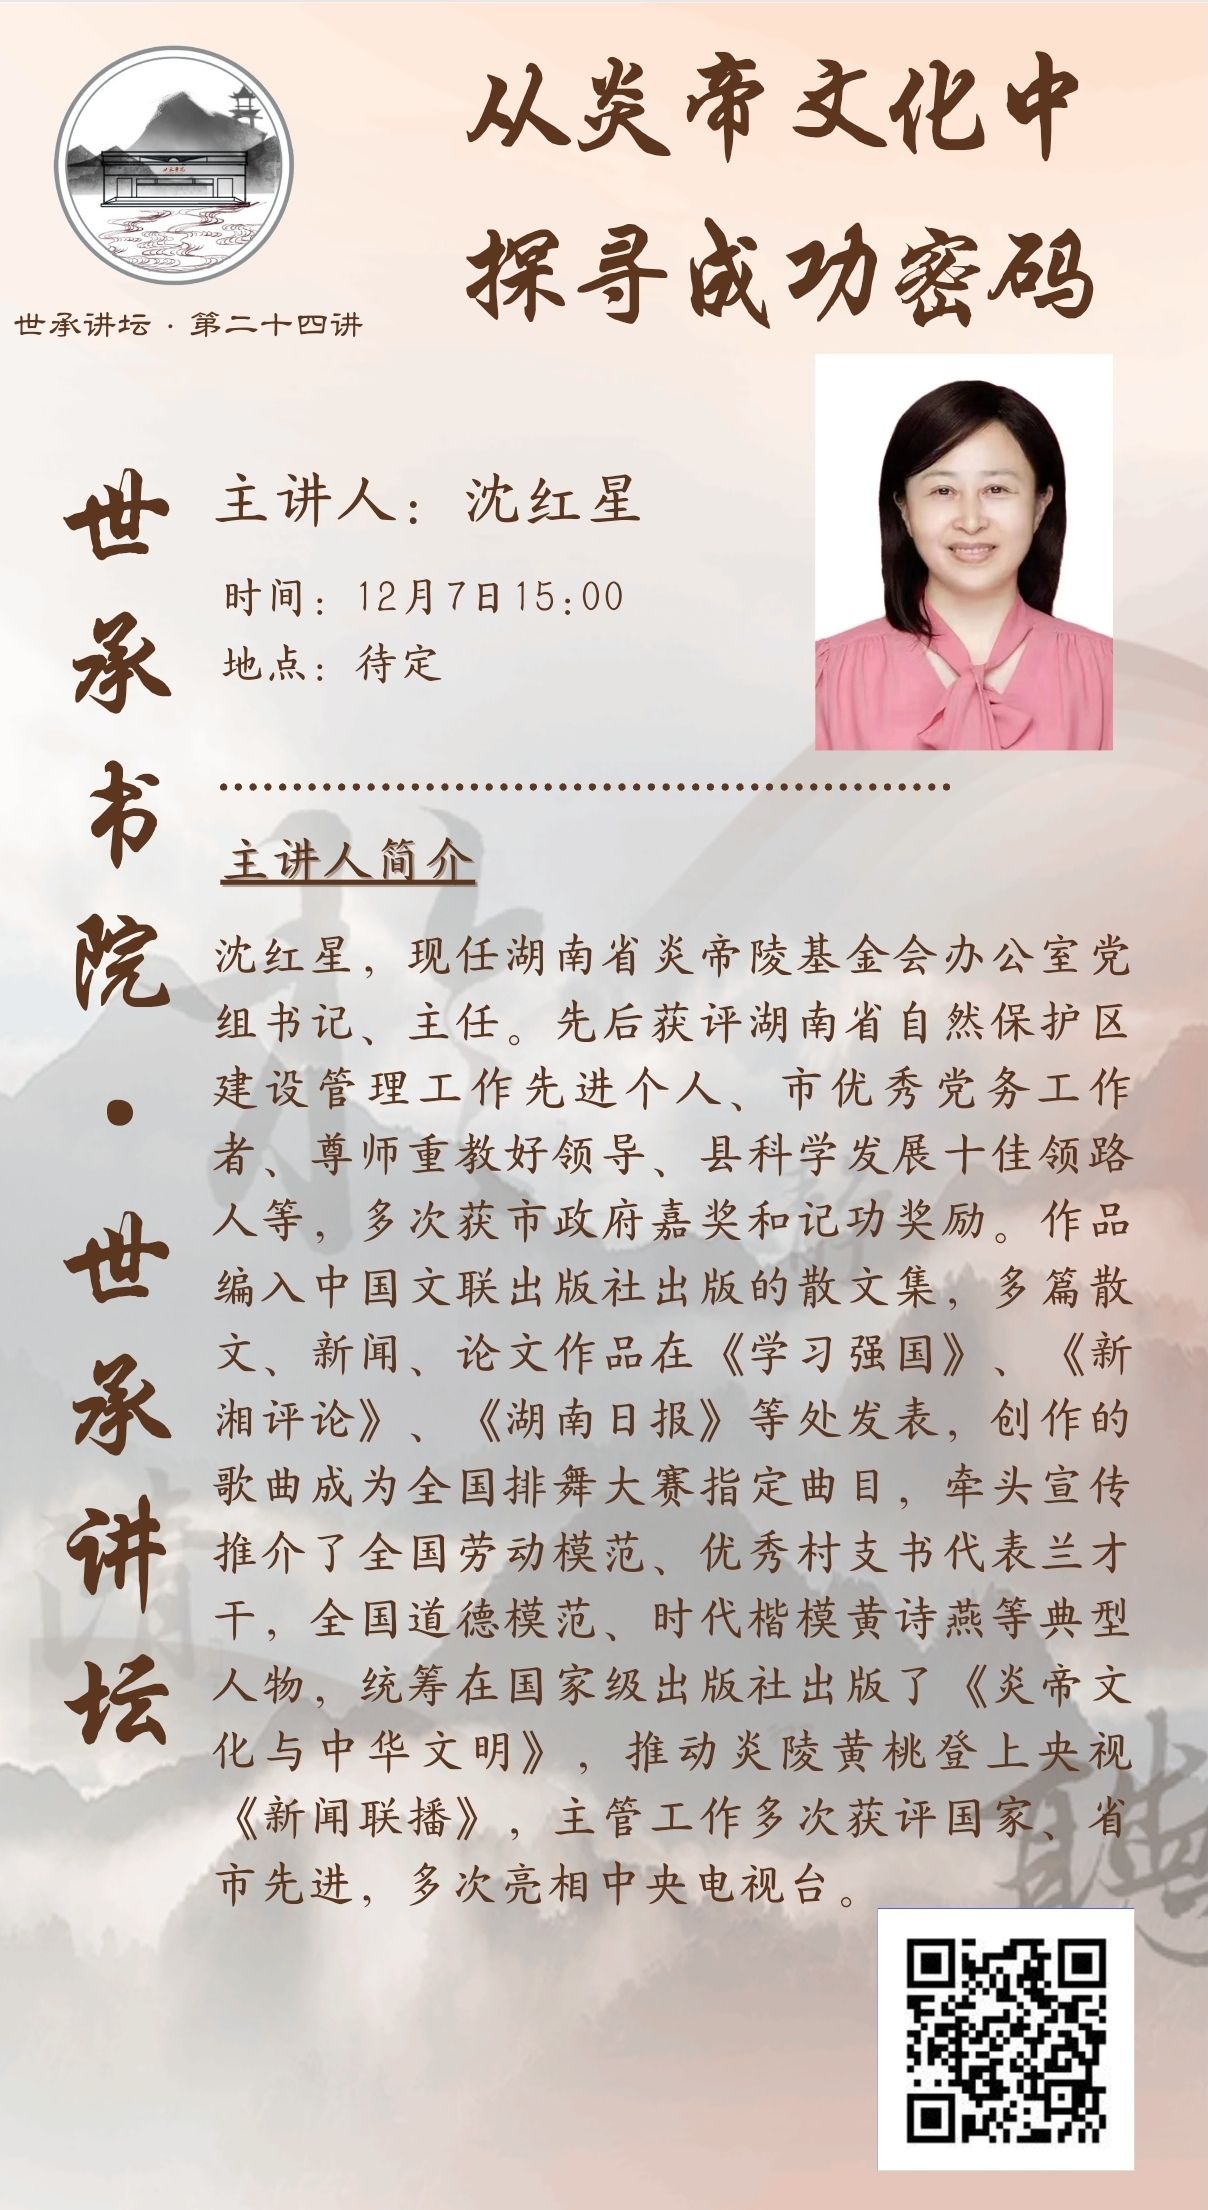 从炎帝文化中
探寻成功密码
世承讲坛·第二十四讲
世承书院·世承讲坛
主讲人：沈红星
时间：12月7日15:00
地点：待定
主讲人简介
沈红星，现任湖南省炎帝陵基金会办公室党
组书记、主任。先后获评湖南省自然保护区
建设管理工作先进个人、市优秀党务工作
者、尊师重教好领导、县科学发展十佳领路
人等，多次获市政府嘉奖和记功奖励。作品
编入中国文联出版社出版的散文集，多篇散
文、新闻、论文作品在《学习强国》、《新
湘评论》、《湖南日报》等处发表，创作的
歌曲成为全国排舞大赛指定曲目，牵头宣传
推介了全国劳动模范、优秀村支书代表兰才
干，全国道德模范、时代楷模黄诗燕等典型
人物，统筹在国家级出版社出版了《炎帝文
化与中华文明》，推动炎陵黄桃登上央视
《新闻联播》，主管工作多次获评国家、省
市先进，多次亮相中央电视台。